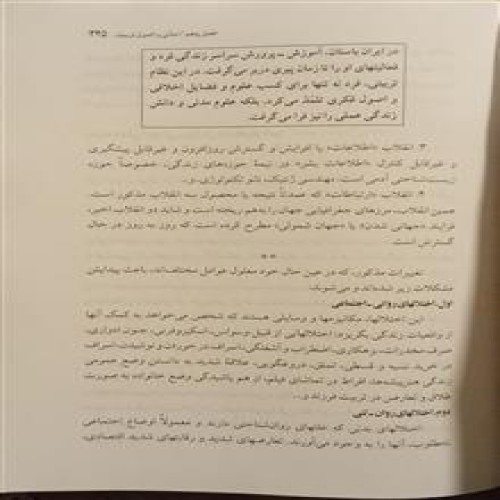 فصل پنجم / مبانی و اصول تربیت ۲۳۵
در ایران باستان، آموزش ـ پرورش سراسر زندگی فرد و
فعالیتهای او را تا زمان پیری دربر می‌گرفت. در این نظام
تربیتی، فرد نه تنها برای کسب علوم و فضایل اخلاقی
و اصول فکری تلمّذ می‌کرد، بلکه علوم مدنی و دانش
زندگی عملی را نیز فرا می‌گرفت.
۳. انقلاب «اطلاعات» با افزایش و گسترش روزافزون و غیرقابل پیشگیری
و غیرقابل کنترل «اطلاعات بشر» در همهٔ حوزه‌های زندگی، خصوصاً حوزه
زیست‌شناختی آدمی است: مهندسی ژنتیک، نانو تکنولوژی و..
۴. انقلاب «ارتباطات» که عمدتاً نتیجه یا محصول سه انقلاب مذکور است.
همین انقلاب، مرزهای جغرافیایی جهان را به‌هم ریخته است و شاید دو انقلاب اخیر،
فرایند «جهانی شدن» یا «جهان شمولی» مطرح کرده است که روز به روز در حال
گسترش است.
**
تغییرات مذکور، که در عین حال خود معلول عوامل مختلف‌اند، باعث پیدایش
مشکلات زیر شده‌اند و می‌شوند:
اول. اختلالهای روانی ـ اجتماعی
این اختلالها، مکانیزمها و وسایلی هستند که شخص می‌خواهد به کمک آنها
از واقعیات زندگی بگریزد: اختلالهایی از قبیل وسواس، اسکیزوفرنی، جنون ادواری،
صرف مخدرات، بزهکاری، اضطراب و آشفتگی، اسراف در خوردن و نوشیدن، اسراف
در خرید نسیه و قسطی، تملق، دروغگویی، علاقهٔ شدید به دانستن وضع خصوصی
زندگی هنرپیشه‌ها، افراط در تماشای فیلم، از هم پاشیدگی وضع خانواده به صورت
طلاق و تعارض در تربیت فرزند و..
دوم. اختلالهای روان ـ تنی
اختلالهای بدنی که علتهای روان‌شناختی دارند و معمولاً اوضاع اجتماعی
نامطلوب، آنها را به وجود می‌آورند. تعارضهای شدید و رقابتهای شدید اقتصادی،